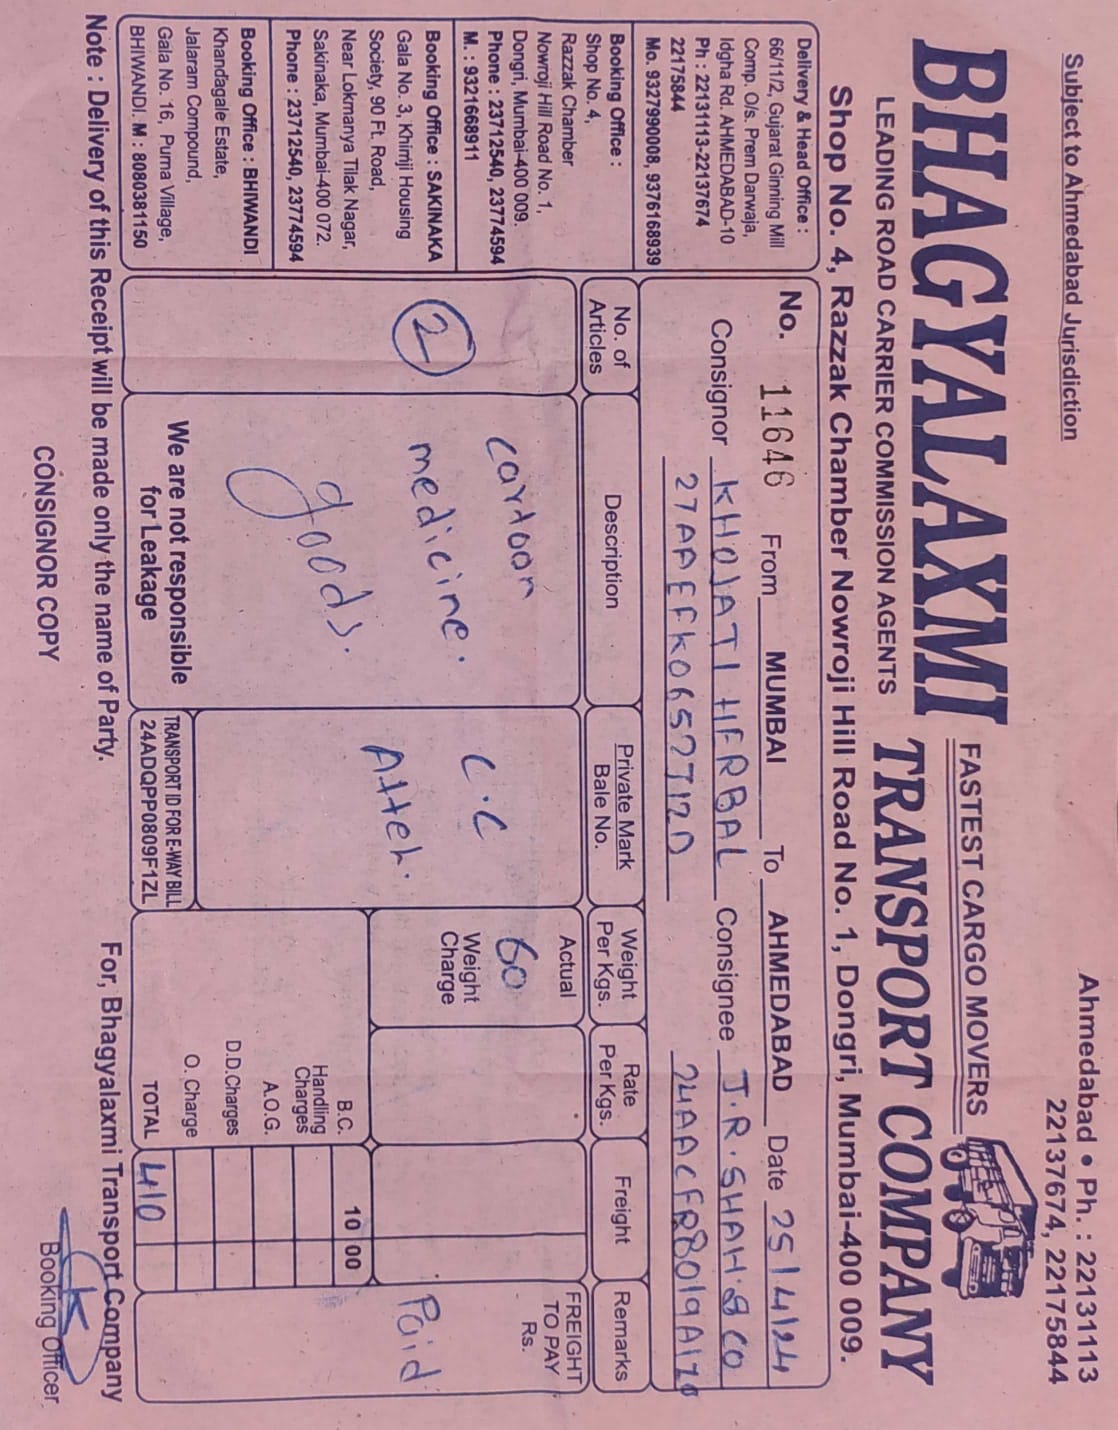 Subject to Ahmedabad Jurisdiction
Ahmedabad • Ph. : 22131113
22137674, 22175844
BHAGYALAXMI
FASTEST CARGO MOVERS
TRANSPORT COMPANY
LEADING ROAD CARRIER COMMISSION AGENTS
Shop No. 4, Razzak Chamber Nowroji Hill Road No. 1, Dongri, Mumbai-400 009.
Delivery & Head Office :
66/11/2, Gujarat Ginning Mill
Comp. O/s. Prem Darwaja,
Idgha Rd. AHMEDABAD-10
Ph : 22131113-22137674
22175844
Mo. 9327990008, 9376168939
Booking Office :
Shop No. 4,
Razzak Chamber
Nowroji Hill Road No. 1,
Dongri, Mumbai-400 009.
Phone : 23712540, 23774594
M. : 9321668911
Booking Office : SAKINAKA
Gala No. 3, Khimji Housing
Society, 90 Ft. Road,
Near Lokmanya Tilak Nagar,
Sakinaka, Mumbai-400 072.
Phone : 23712540, 23774594
Booking Office : BHIWANDI
Khandagale Estate,
Jalaram Compound,
Gala No. 16, Purna Village,
BHIWANDI. M : 8080381150
No. 11646 From MUMBAI To AHMEDABAD Date 25/4/24
Consignor KHOJATI HERBAL Consignee J.R.SHAH & CO
27AAEFK0652J1ZD
No. of Articles
Description
Private Mark
Bale No.
Weight Per Kgs.
Rate Per Kgs.
Freight
Remarks
2
Cartoon
medicine.
goods.
C.C
Atteh.
Actual
60
Weight Charge
FREIGHT TO PAY Rs.
Paid
B.C. 10 00
Handling Charges
A.O.G.
D.D.Charges
O. Charge
TOTAL 410
We are not responsible
for Leakage
TRANSPORT ID FOR E-WAY BILL
24ADQPP0809F1ZL
Note : Delivery of this Receipt will be made only the name of Party.
For, Bhagyalaxmi Transport Company
CONSIGNOR COPY
Booking Officer